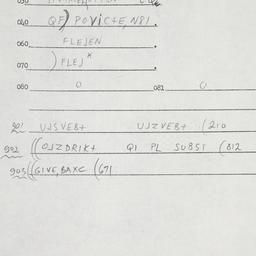 040 QF) POVICTE, N81.
060 FLEJEN
070 ) FLEJ x
080 0 081 0
901 UJSVEB+ UJZVEB+ (210
902 ((OJZDRIK+ QI PL SUBSI (812
903 ((GIVE, BAXC (671